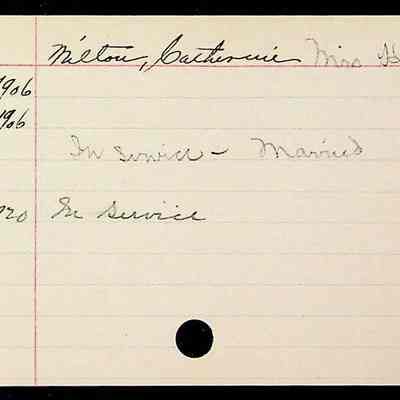 Milton, Catherine Mrs
1906
1906
In service - Married
In service